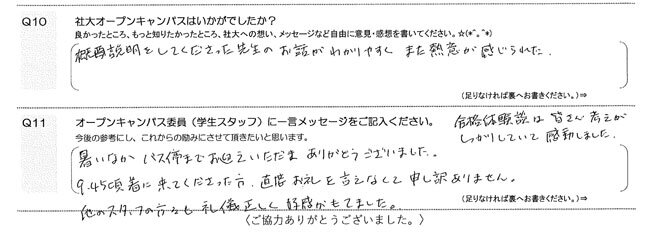 Q10 社大オープンキャンパスはいかがでしたか?
良かったところ、もっと知りたかったところ、社大への想い、メッセージなど自由に意見・感想を書いてください。☆(*^_^*)
概要説明をしてくださった先生のお話がわかりやすく また熱意が感じられた.
(足りなければ裏へお書きください。)⇒
Q11 オープンキャンパス委員(学生スタッフ)に一言メッセージをご記入ください。
今後の参考にし、これからの励みにさせて頂きたいと思います。
合格体験談は 皆さん考えが
しっかりしていて 感動しました.
暑いなか バス停まで お迎えいただき ありがとうございました。
9.45頃 着に 来てくださった方. 直接 お礼を言えなくて 申し訳ありません。
他のスタッフの方々も 礼儀正しく 好感がもてました。
(足りなければ裏へお書きください。)⇒
〈ご協力ありがとうございました。〉